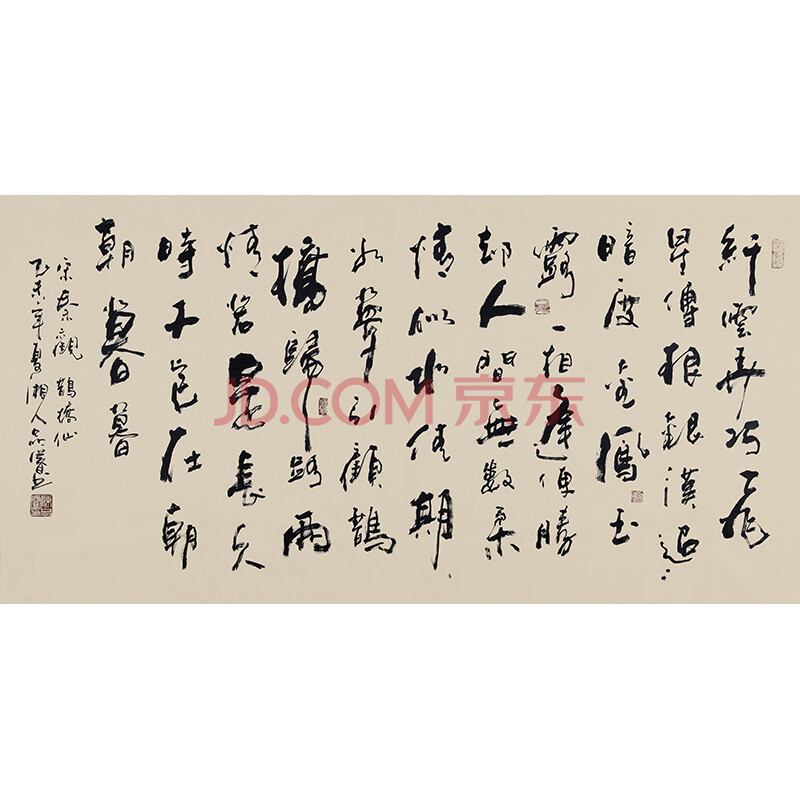 纤雲弄巧飛
星傳恨銀漢迢〻
暗度金風玉
露一相逢便勝
却人間無數柔
情似水佳期
如夢忍顧鵲
橋歸路兩
情若是長久
時又豈在朝
朝暮暮
宋秦觀鵲橋仙
乙未年夏湘人
JD.COM 京东